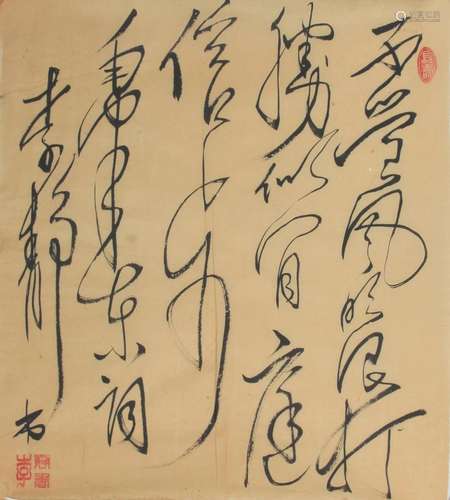 不管风吹浪打
勝似閒庭
信步
毛泽东词
李静
书